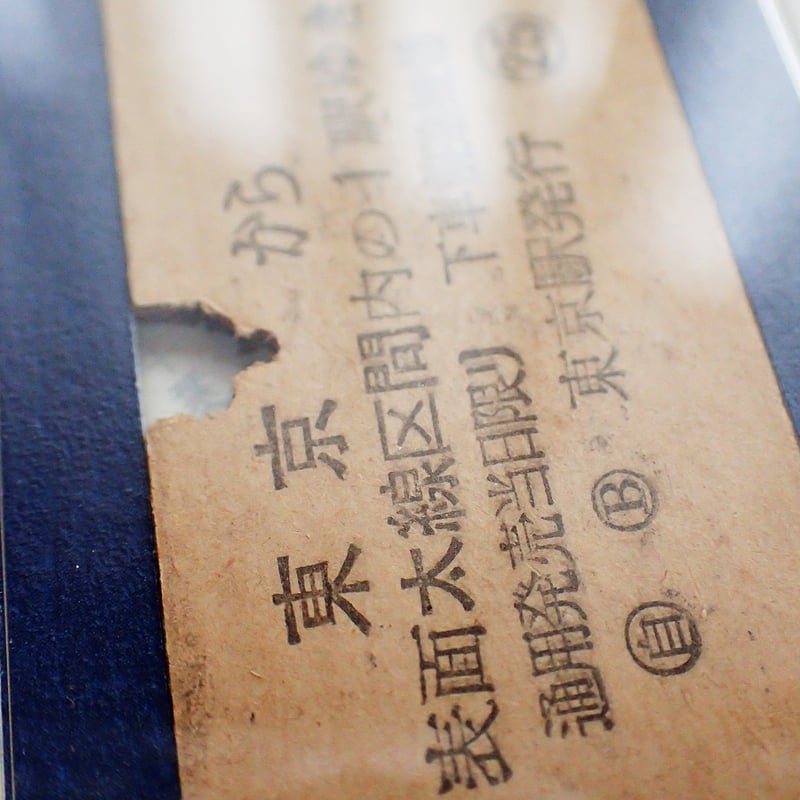 東京から
表面太線区間内の1駅ゆき
通用発売当日限り 下車
㊂ Ⓑ 東京駅発行 ㉕